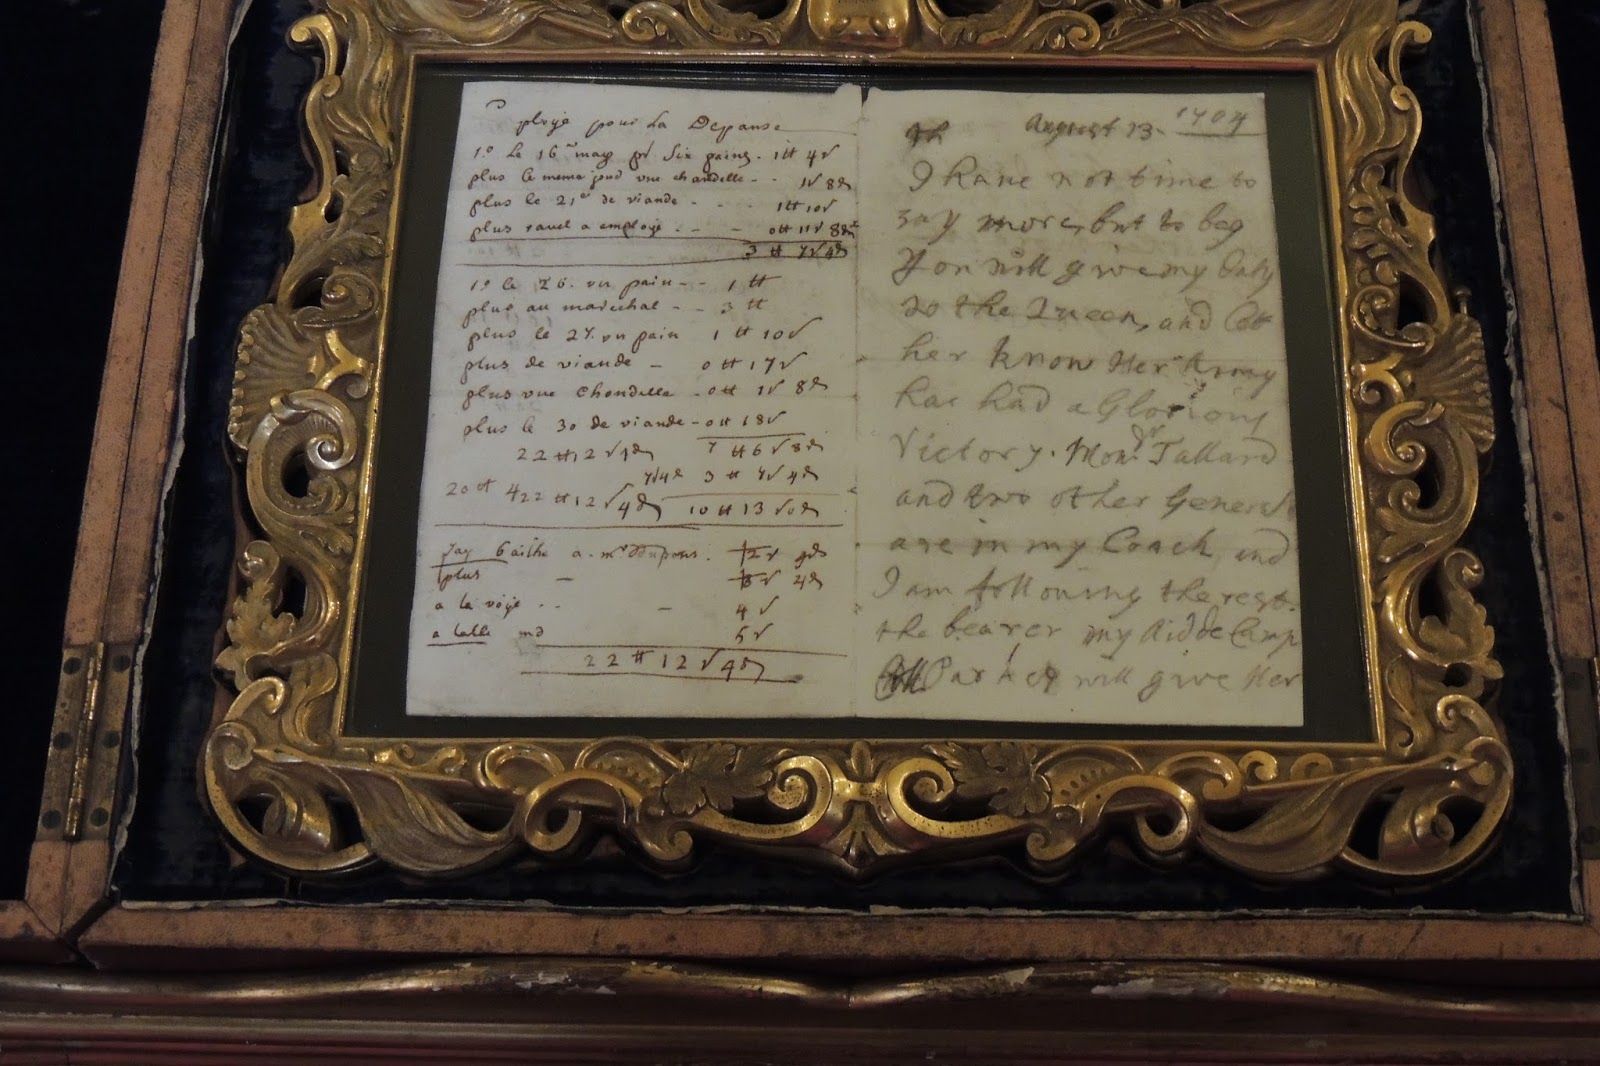 ployé pour La Depanse
1º Le 16 may pr Six pains - 1 tt 4 s
plus le meme jour vne chandelle - - 1 s 8 d
plus le 21e de viande - - - 1 tt 10 s
plus a employé - - - 0 tt 11 s 8 d
3 tt 7 s 4 d
1º le 26. vn pain - - 1 tt
plus au marechal - - 3 tt
plus le 27. vn pain 1 tt 10 s
plus de viande - 0 tt 17 s
plus vne chondelle - 0 tt 1 s 8 d
plus le 30 de viande - 0 tt 18 s
22 tt 12 s 7 tt 6 s 8 d
3 tt 7 s 4 d
20 tt 422 tt 12 s 4 d 10 tt 13 s 0 d
Jay a mr
plus -
a la - 4 s
a md 5 s
22 tt 12 s 4 d
August 13 1704
I have not time to
say more, but to beg
You will give my Duty
to the Queen, and let
her know Her Army
has had a Glorious
Victory. Monsr Tallard
and two other Generals
are in my Coach and
I am following the rest.
the bearer my Aidde Camp
Coll Parker will give Her